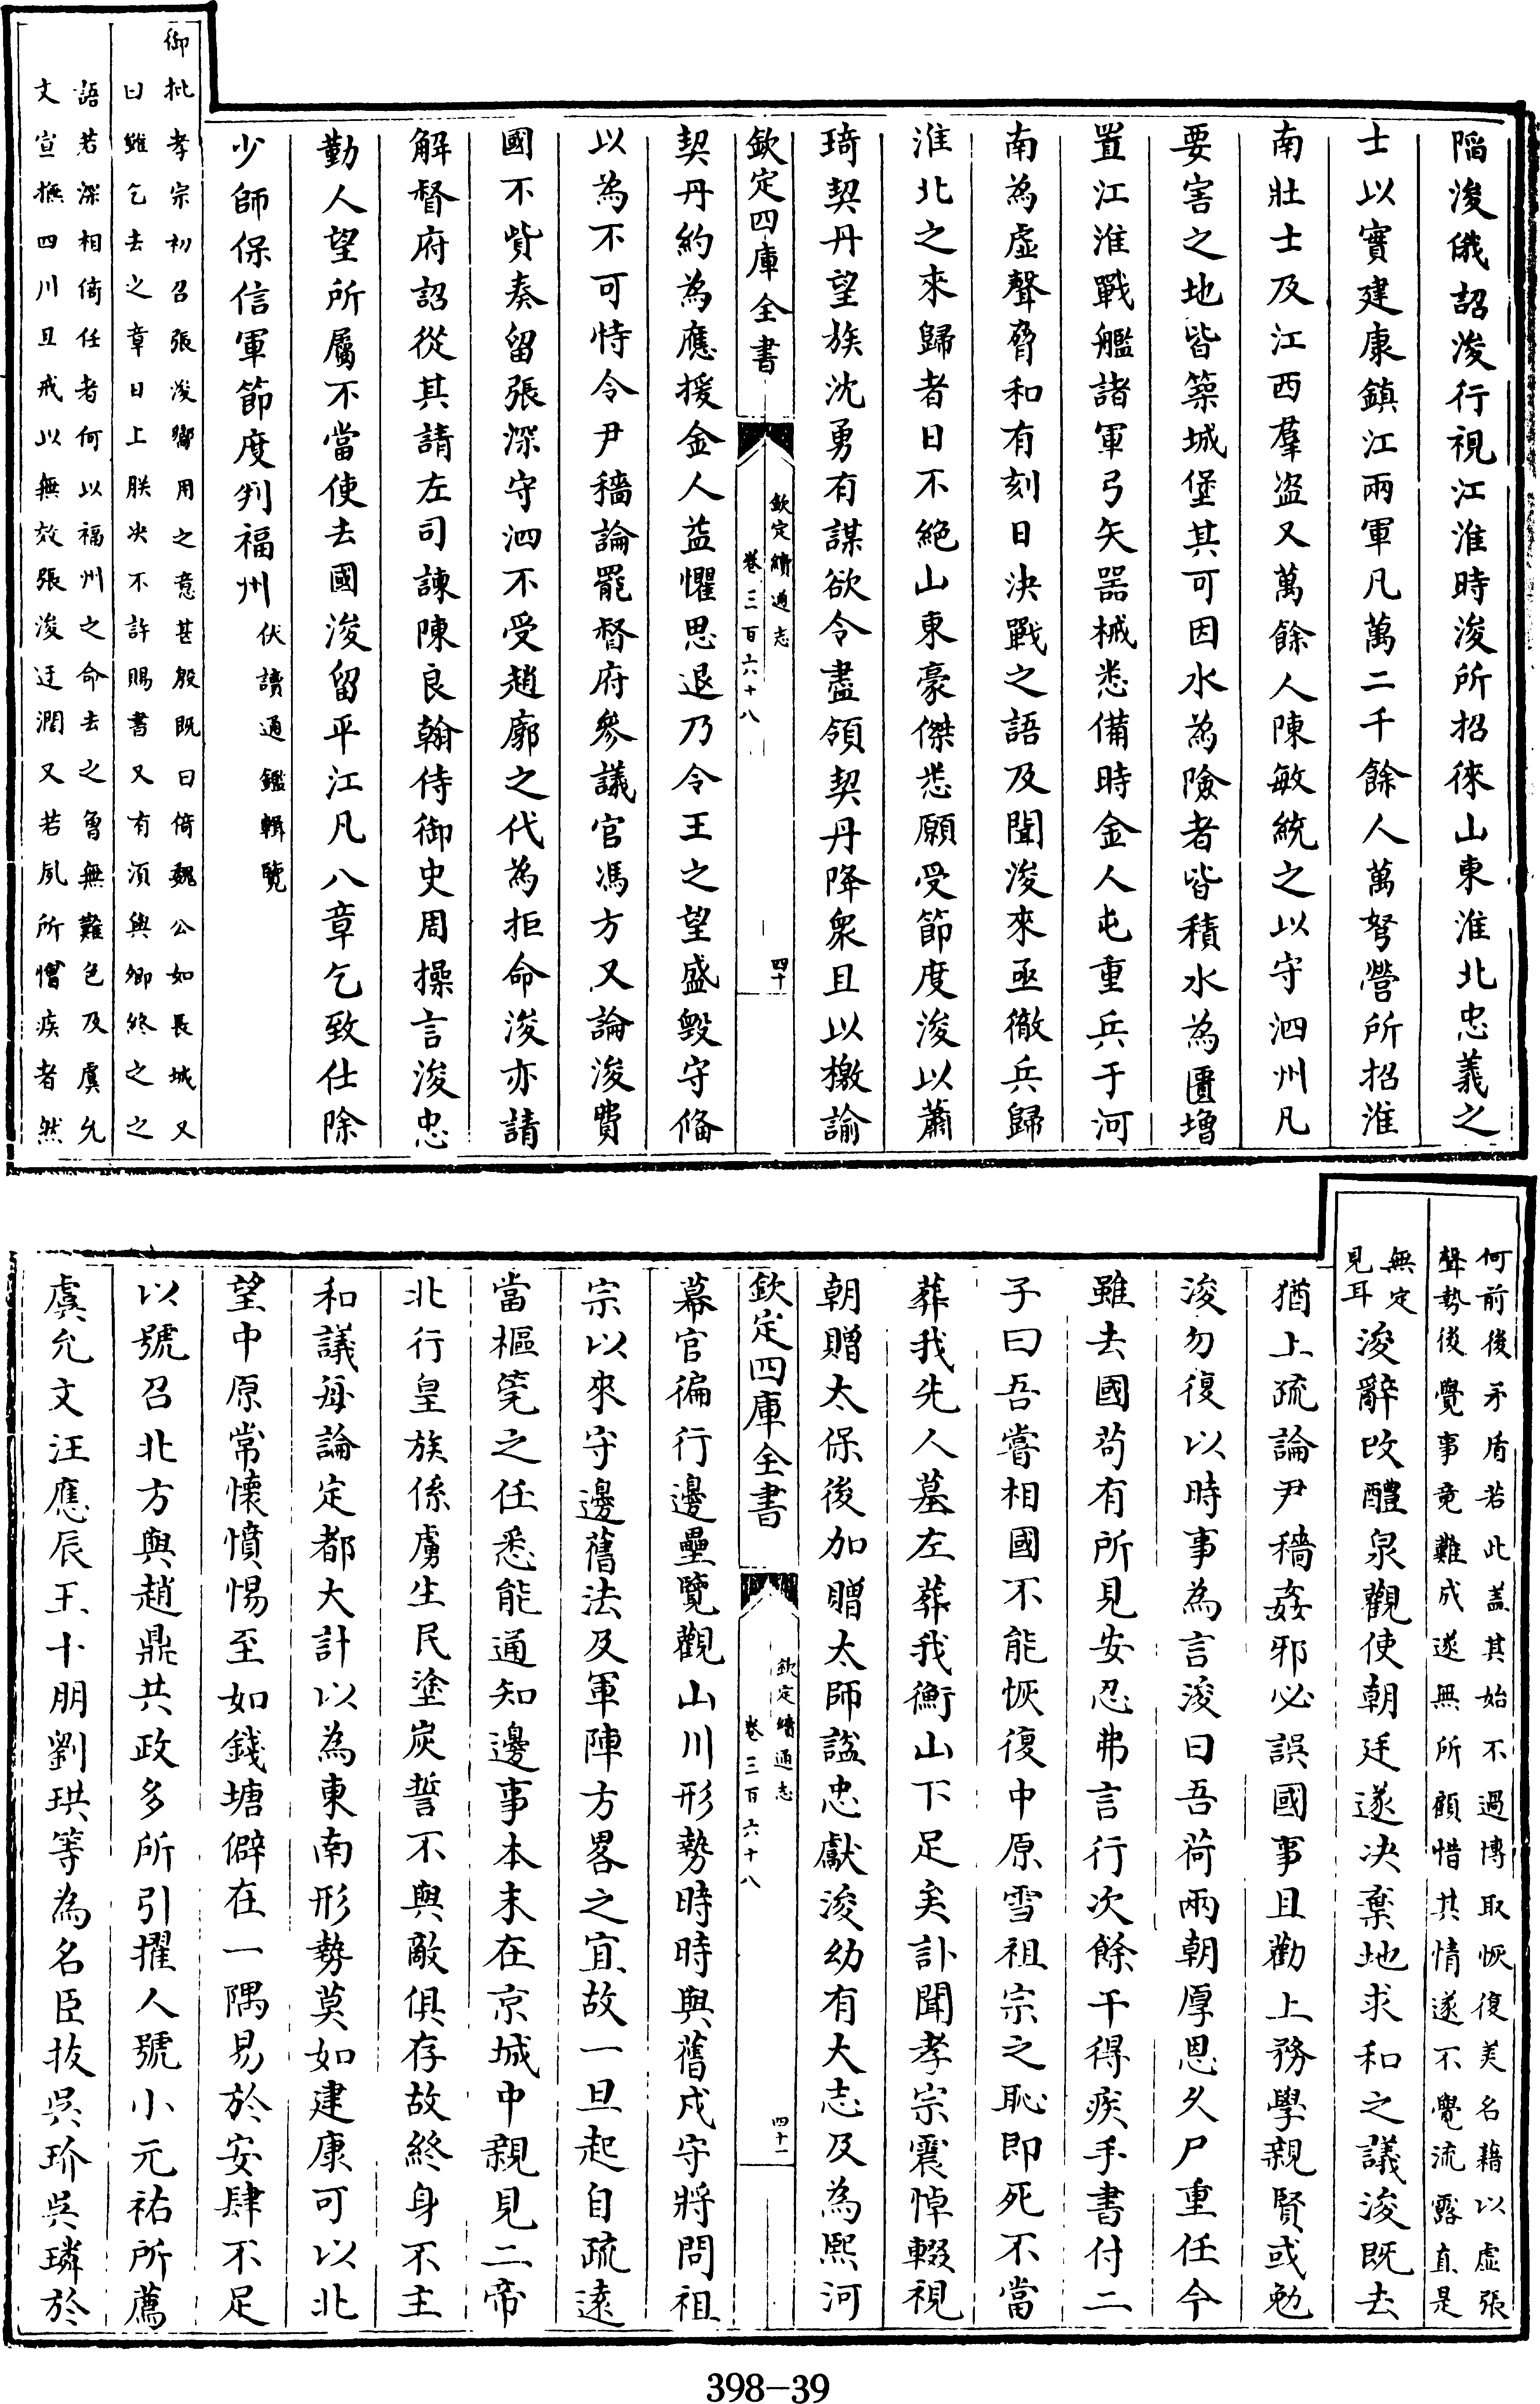 陷浚俄詔浚行視江淮時浚所招徠山東淮北忠義之
士以實建康鎮江兩軍凡萬二千餘人萬弩營所招淮
南壯士及江西羣盗又萬餘人陳敏統之以守泗州凡
要害之地皆築城堡其可因水為險者皆積水為匱增
置江淮戰艦諸軍弓矢噐械悉備時金人屯重兵于河
南為虛聲脅和有刻日決戰之語及聞浚來亟徹兵歸
淮北之來歸者日不絕山東豪傑悉願受節度浚以蕭
琦契丹望族沈勇有謀欲令盡領契丹降衆且以檄諭
欽定四庫全書
欽定續通志
卷三百六十八
四十
契丹約為應援金人益懼思退乃令王之望盛毀守備
以為不可恃令尹穡論罷督府參議官馮方又論浚費
國不貲奏留張深守泗不受趙廓之代為拒命浚亦請
解督府詔從其請左司諫陳良翰侍御史周操言浚忠
勤人望所屬不當使去國浚留平江凡八章乞致仕除
少師保信軍節度判福州
伏讀通鑑輯覽
御批孝宗初召張浚嚮用之意甚殷既曰倚魏公如長城又
曰雖乞去之章日上朕决不許賜書又有須與卿終之之
語若深相倚任者何以福州之命去之曾無難色及虞允
文宣撫四川且戒以無效張浚迂濶又若夙所憎疾者然
何前後矛盾若此盖其始不過博取恢復美名藉以虛張
聲勢後覺事竟難成遂無所顧惜其情遂不覺流露直是
無定
見耳
浚辭改醴泉觀使朝廷遂决棄地求和之議浚既去
猶上疏論尹穡姦邪必誤國事且勸上務學親賢或勉
浚勿復以時事為言浚曰吾荷兩朝厚恩久尸重任今
雖去國苟有所見安忍弗言行次餘干得疾手書付二
子曰吾嘗相國不能恢復中原雪祖宗之恥即死不當
葬我先人墓左葬我衡山下足矣訃聞孝宗震悼輟視
朝贈太保後加贈太師諡忠獻浚幼有大志及為熙河
欽定四庫全書
欽定續通志
卷三百六十八
四十一
幕官徧行邊壘覽觀山川形勢時時與舊戍守將問祖
宗以來守邊舊法及軍陣方畧之宜故一旦起自疏遠
當樞筦之任悉能通知邊事本末在京城中親見二帝
北行皇族係虜生民塗炭誓不與敵俱存故終身不主
和議每論定都大計以為東南形勢莫如建康可以北
望中原常懷憤惕至如錢塘僻在一隅易於安肆不足
以號召北方與趙鼎共政多所引擢人號小元祐所薦
虞允文汪應辰王十朋劉珙等為名臣拔吳玠吳璘於
398-39